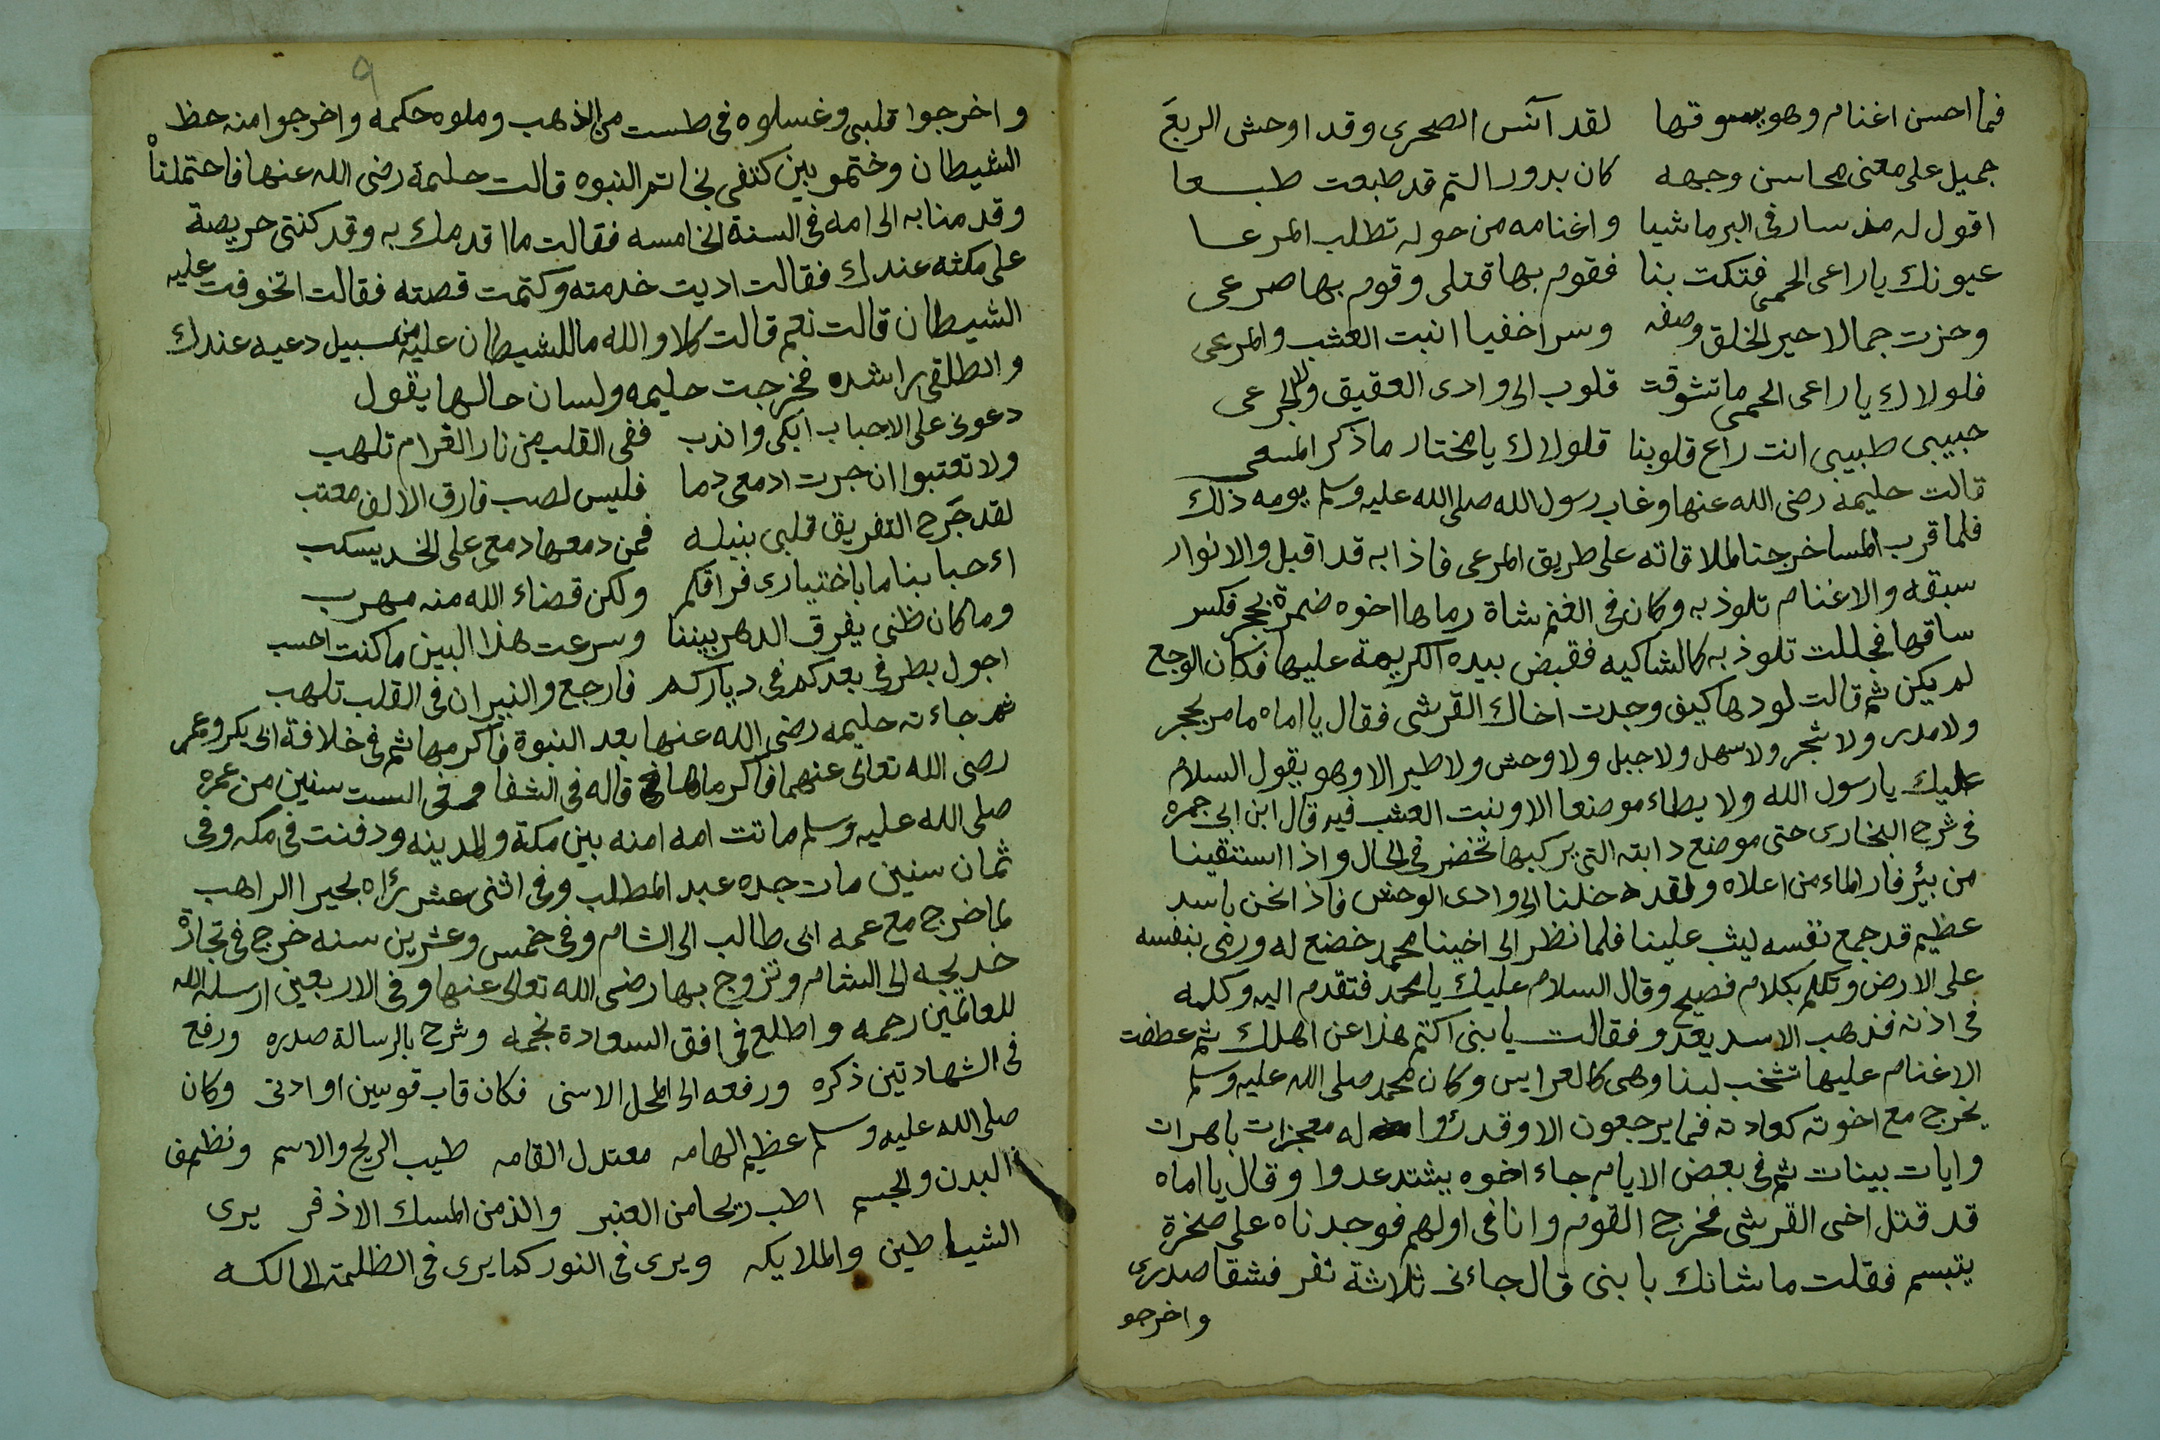 فما احسن اغنام وهو يسوقها لقد آنس الصحرى وقد اوحش الربعَ
جميل على معنى محاسن وجهه كان بدور التم قد طبعت طبعا
اقول له مذ سار فى البر ماشيا واغنامه من حوله تطلب المرعا
عيونك يا راعى الحمى فتكت بنا فقوم بها قتلى وقوم بها صرعى
وحزت جمالا حير الخلق وصفه وسرا خفيا انبت العشب والمرعى
فلولاك يا راعى الحمى ما تشوقت قلوب الى وادى العقيق ولا الجرعى
حبيبى طبيبى انت راع قلوبنا فلولاك يا مختار ما ذكر المسعى
قالت حليمه رضى الله عنها وغاب رسول الله صلى الله عليه وسلم يومه ذالك
فلما قرب المسا خرجنا لملاقاته على طريق المرعى فاذا به قد اقبل والانوار
سبقه والاغنام تلوذ به وكان فى الغنم شاة رماها اخوه ضمرة بحجر فكسر
ساقها فجللت تلوذ به كالشاكيه فقبض بيده الكريمة عليها فكان الوجع
لم يكن ثم قالت لودها كيف وجدت اخاك القرشى فقال يا اماه ما مر بحجر
ولا مدر ولا شجر ولا سهل ولا جبل ولا وحش ولا طير الا وهو يقول السلام
عليك يا رسول الله ولا يطاء موضعا الا وينبت العشب فيه قال ابن ابى جمره
فى شرح البخارى حتى موضع دابته التى يركبها تخضر فى الحال واذا استقينا
من بئر فار الماء من اعلاه ولقد دخلنا الى وادى الوحش فاذا نحن باسد
عظيم قد جمع نفسه ليثب علينا فلما نظر الى اخينا محمد خضع له ورمى بنفسه
على الارض وتكلم بكلام فصيح وقال السلام عليك يا محمد فتقدم اليه وكلمه
فى اذنه فذهب الاسد يعدو فقالت يا بنى اكتم هذا عن اهلك ثم عطفت
الاغنام عليها تشخب لبنا وهى كالعرايس وكان محمد صلى الله عليه وسلم
يخرج مع اخوته كعادته فما يرجعون الا وقد رئوا له معجزات باهرات
وايات بينات ثم فى بعض الايام جاء اخوه يشتد عدوا وقال يا اماه
قد قتل اخى القرشى فخرج القوم وانا فى اولهم فوجدناه على صخرة
يتبسم فقلت ما شانك يا بنى قال جاءنى ثلاثة نفر فشقا صدرى
واخرجو
٩
واخرجوا قلبى وغسلوه فى طست من الذهب وملوه حكمه واخرجوا منه حظ
الشيطان وختمو بين كتفى بخاتم النبوه قالت حليمة رضى الله عنها فاحتملناْ
وقدمنا به الى امه فى السنة الخامسه فقالت ما اقدمك به وقد كنتى حريصة
على مكثه عندك فقالت اديت خدمته وكتمت قصته فقالت اتخوفت عليه
الشيطان قالت نعم قالت كلا والله ما للشيطان عليه من سبيل دعيه عندك
وانطلقى راشده فخرجت حليمه ولسان حالها يقول
دعونى على الاحباب ابكى واندب ففى القلب من نار الغرام تلهب
ولا تعتبوا ان جرت ادمعى دما فليس لصب فارق الالف معتب
لقد جَرح التفريق قلبى بنبله فمن دمعها دمع على الخد يسكب
اءحبابنا ما باختيارى فراقكم ولكن قضاء الله منه مهرب
وما كان ظنى يفرق الدهر بيننا وسرعت هذا البين ما كنت احسب
اجول بطرفى بعدكم فى دياركم فارجع والنيران فى القلب تلهب
ثم جاءته حليمه رضى الله عنها بعد النبوة فاكرمها ثم فى خلافة ابى بكر وعمر
رضى الله تعالى عنهما فاكرماها قاله فى الشفا وفى الست سنين من عمره
صلى الله عليه وسلم ماتت امه امنه بين مكة والمدينه ودفنت فى مكه وفى
ثمان سنين مات جده عبد المطلب وفى اثنى عشر رئاه بحيرا الراهب
لما خرج مع عمه ابى طالب الى الشام وفى خمس وعشرين سنه خرج فى تجارة
خديجه الى الشام وتزوج بها رضى الله تعالى عنها وفى الاربعين ارسله الله
للعالمين رحمه واطلع فى افق السعادة نجمه وشرح بالرسالة صدره ورفع
فى الشهادتين ذكره ورفعه الى المحل الاسنى فكان قاب قوسين او ادنى وكان
صلى الله عليه وسلم عظيم الهامه معتدل القامه طيب الريح والاسم ونظيف
البدن والجسم اطيب ريحا من العنبر والذ من المسك الاذفر يرى
الشياطين والملايكه ويرى فى النور كما يرى فى الظلمة الحالكه